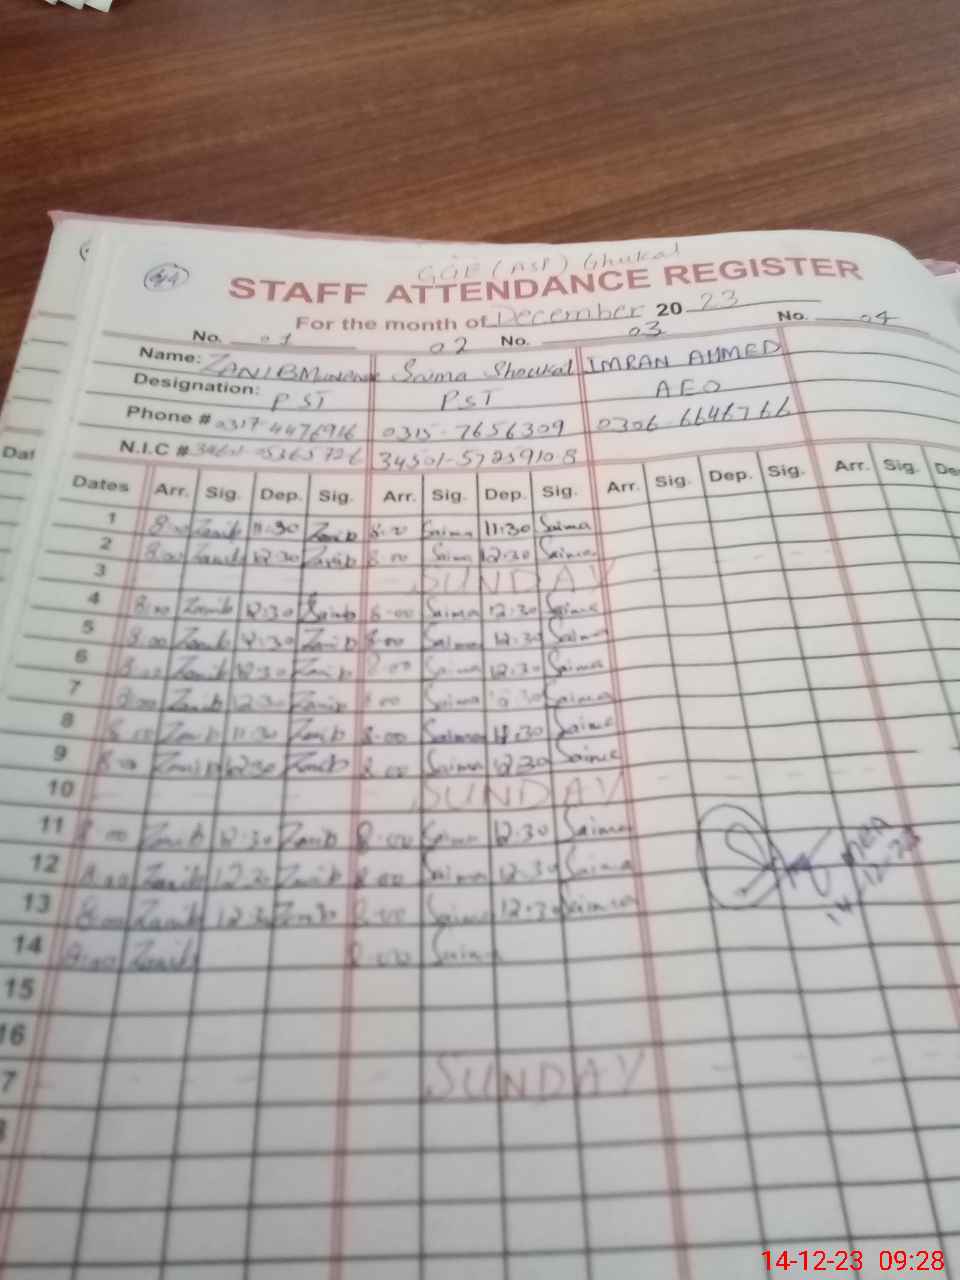 GGE (ASP) Ghukal
STAFF ATTENDANCE REGISTER
For the month of December 20 23
No. 01 02 No. 03 No. 04
Name: Saima Shoukat IMRAN AHMED
Designation: PST PST AEO
Phone # 0317-4476916 0315-7656309 0306-6646766
N.I.C # 34501-5725910-8
Dates Arr. Sig. Dep. Sig. Arr. Sig. Dep. Sig. Arr. Sig. Dep. Sig. Arr. Sig. De
1 8:00 Zanib 11:30 Zanib 8:00 Saima 11:30 Saima
2 8:00 Zanib 12:30 Zanib 8:00 Saima 12:30 Saima
3 SUNDAY
4 8:00 Zanib 12:30 Zainb 8:00 Saima 12:30 Saima
5 8:00 Zanib 12:30 Zanib 8:00 Saima 12:30 Saima
6 8:00 Zanib 12:30 Zanib 8:00 Saima 12:30 Saima
7 8:00 Zanib 12:30 Zanib 8:00 Saima 12:30 Saima
8 8:00 Zanib 11:30 Zanib 8:00 Saima 11:30 Saima
9 8:00 Zanib 12:30 Zanib 8:00 Saima 12:30 Saima
10 SUNDAY
11 8:00 Zanib 12:30 Zanib 8:00 Saima 12:30 Saima
12 8:00 Zanib 12:30 Zanib 8:00 Saima 12:30 Saima
13 8:00 Zanib 12:30 Zanib 8:00 Saima 12:30 Saima
14 8:00 Zanib 8:00 Saima
MEA
14-12-23
15
16
7 SUNDAY
Dat
14-12-23 09:28